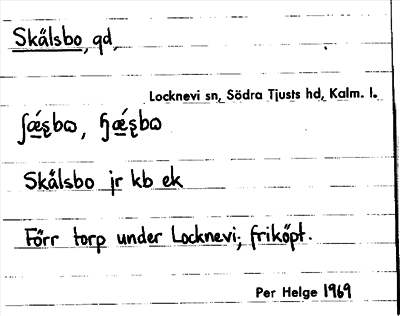 Skålsbo, gd,
Locknevi sn, Södra Tjusts hd, Kalm. l.
ʃǽʂbɷ, ɧǽʂbɷ
Skålsbo jr kb ek
Förr torp under Locknevi; friköpt.
Per Helge 1969